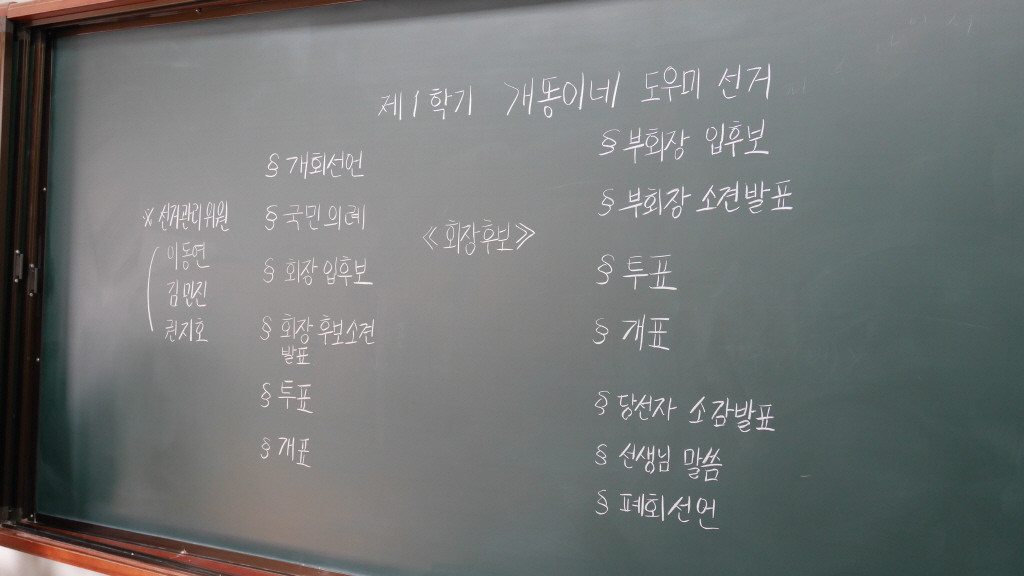 제1학기 개똥이네 도우미 선거
※ 선거관리위원
이동연
김민진
권지호
§ 개회선언
§ 국민의례
§ 회장 입후보
§ 회장 후보소견
발표
§ 투표
§ 개표
《회장후보》
§ 부회장 입후보
§ 부회장 소견발표
§ 투표
§ 개표
§ 당선자 소감발표
§ 선생님 말씀
§ 폐회선언